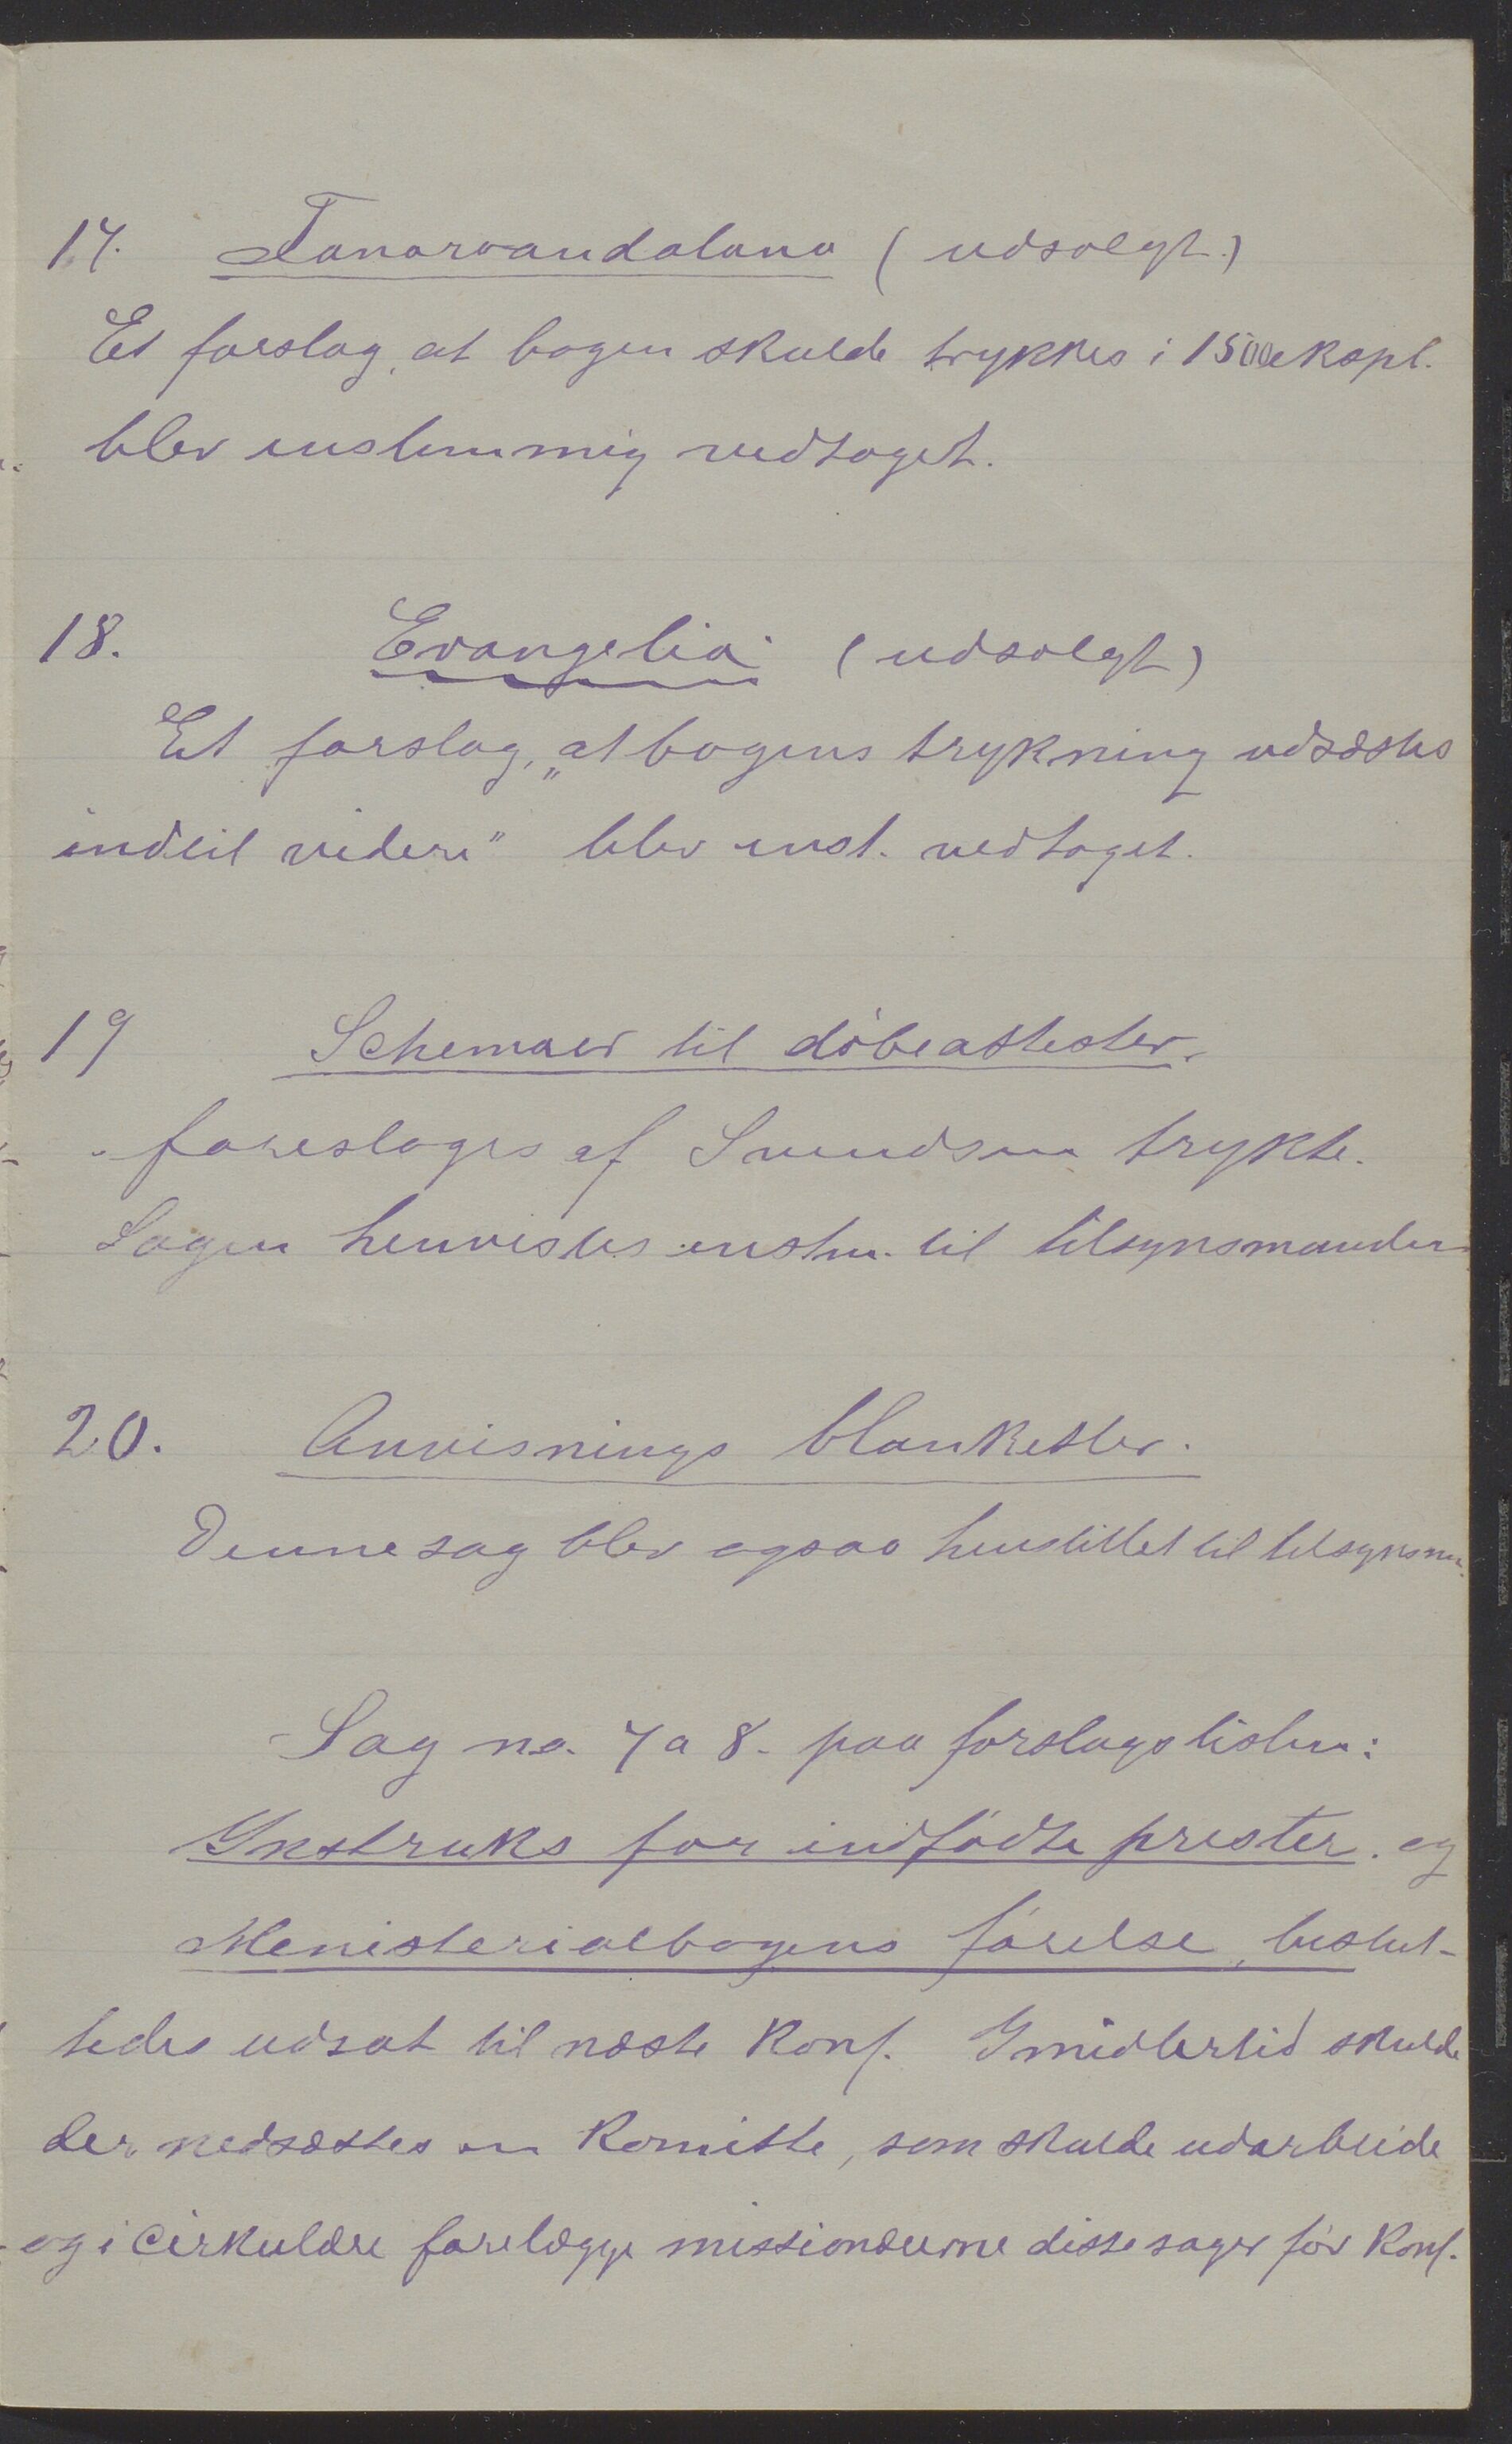 17. Fanarvandalana (udsolgt.)
Et forslag, at bogen skulde trykkes i 1500 ekspl.
blev enstemmig vedtaget.
18. Evangelia (udsolgt)
Et forslag, „at bogens trykning udsættes
indtil videre" blev enst. vedtaget.
19 Schemaer til døbeattester.
foresloges af Svendsen trykte.
Sagen henvistes enstm. til tilsynsmanden
20. Anvisnings blanketter.
Denne sag blev ogsaa henstillet til tilsynsm.
Sag no. 7 a 8. paa forslagslisten:
Instruks for indfødte prester. og
Menisterialbogens førelse, beslut-
tedes udsat til næste Konf. Imidlertid skulde
der nedsættes en Komitte, som skulde udarbeide
og i Cirkulære forelægge missionærerne disse sager før Konf.